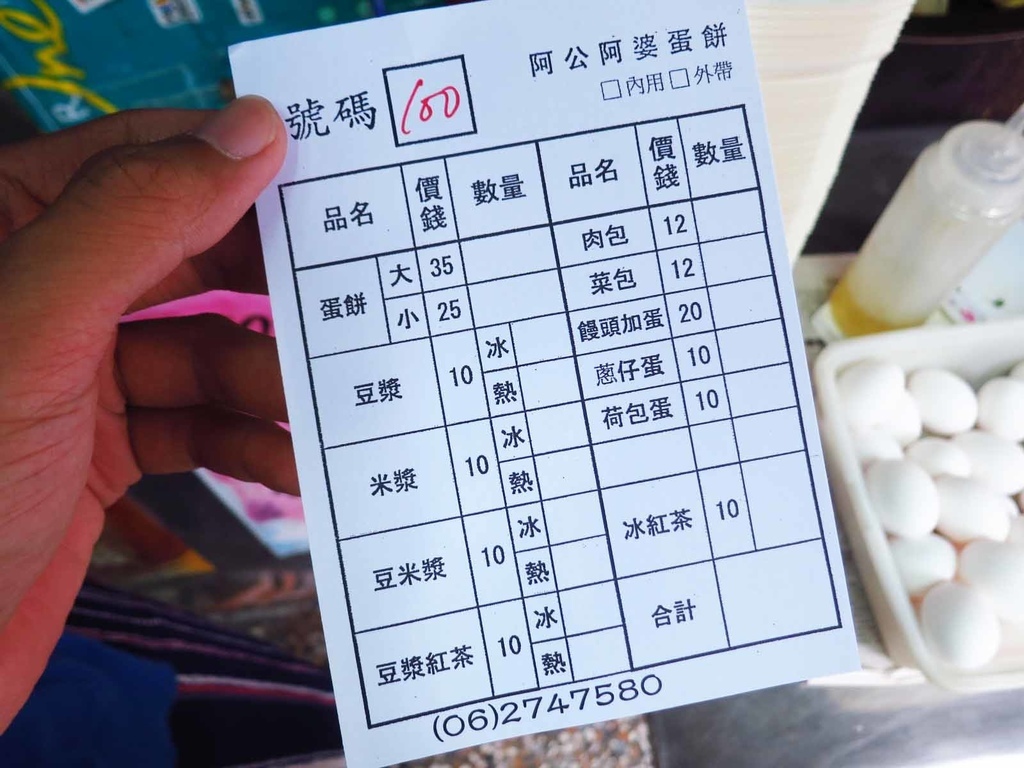 阿公阿婆蛋餅
號碼 100 □內用□外帶
品名 價錢 數量 品名 價錢 數量
蛋餅 大 35
小 25
豆漿 10 冰
熱
米漿 10 冰
熱
豆米漿 10 冰
熱
豆漿紅茶 10 冰
熱
肉包 12
菜包 12
饅頭加蛋 20
蔥仔蛋 10
荷包蛋 10
冰紅茶 10
合計
(06)2747580